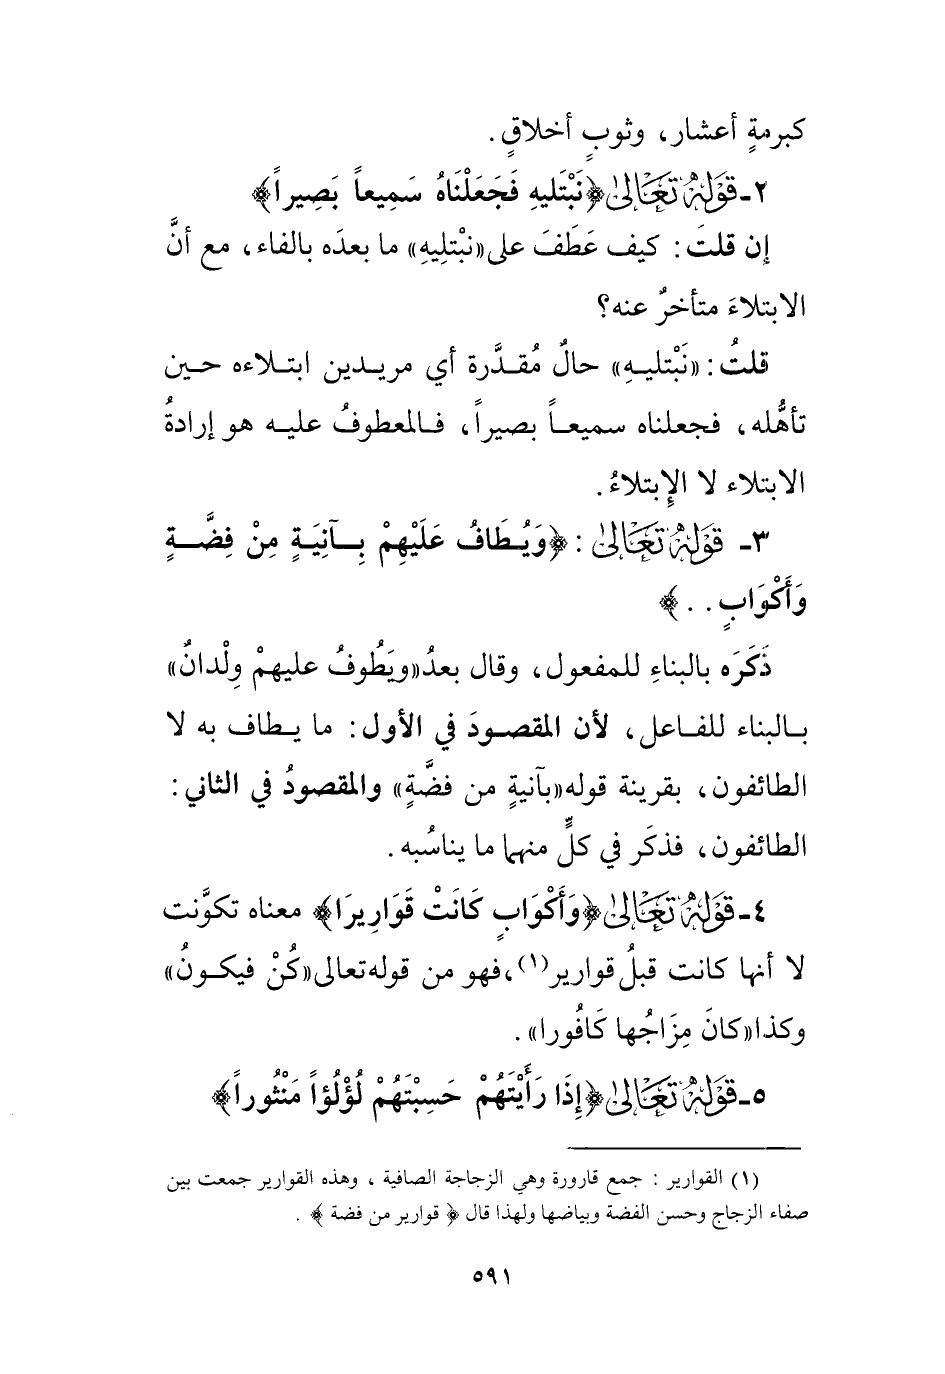 كبرمةٍ أعشار، وثوبٍ أخلاقٍ.
٢ـ قَوْلُهُ تَعَالَىٰ ﴿نَبْتَليهِ فَجَعَلْنَاهُ سَمِيعاً بَصِيراً﴾
إن قلتَ: كيف عَطَفَ على «نبْتلِيهِ» ما بعدَه بالفاء، مع أنَّ
الابتلاءَ متأخرٌ عنه؟
قلتُ: «نَبْتليهِ» حالٌ مُقدَّرة أي مريدين ابتلاءه حين
تأهُّله، فجعلناه سميعاً بصيراً، فالمعطوفُ عليه هو إرادةُ
الابتلاء لا الإبتلاءُ.
٣ـ قَوْلُهُ تَعَالَىٰ : ﴿وَيُطَافُ عَلَيْهِمْ بِآنِيَةٍ مِنْ فِضَّةٍ
وَأَكْوَابٍ . . ﴾
ذَكَرَه بالبناءِ للمفعول، وقال بعدُ «ويَطُوفُ عليهمْ وِلْدانٌ»
بالبناء للفاعل، لأن المقصودَ في الأول: ما يطاف به لا
الطائفون، بقرينة قوله «بآنيةٍ من فضَّةٍ» والمقصودُ في الثاني:
الطائفون، فذكَر في كلٍّ منهما ما يناسُبه.
٤ـ قَوْلُهُ تَعَالَىٰ ﴿وَأَكْوَابٍ كَانَتْ قَوَارِيرَا﴾ معناه تكوَّنت
لا أنها كانت قبلُ قوارير(١)، فهو من قوله تعالى «كُنْ فيكونُ»
وكذا «كانَ مِزَاجُها كَافُورا».
٥ـ قَوْلُهُ تَعَالَىٰ ﴿إِذَا رَأَيْتَهُمْ حَسِبْتَهُمْ لُؤْلُؤاً مَنْثُوراً﴾
(١) القوارير : جمع قارورة وهي الزجاجة الصافية ، وهذه القوارير جمعت بين
صفاء الزجاج وحسن الفضة وبياضها ولهذا قال ﴿ قوارير من فضة ﴾ .
٥٩١